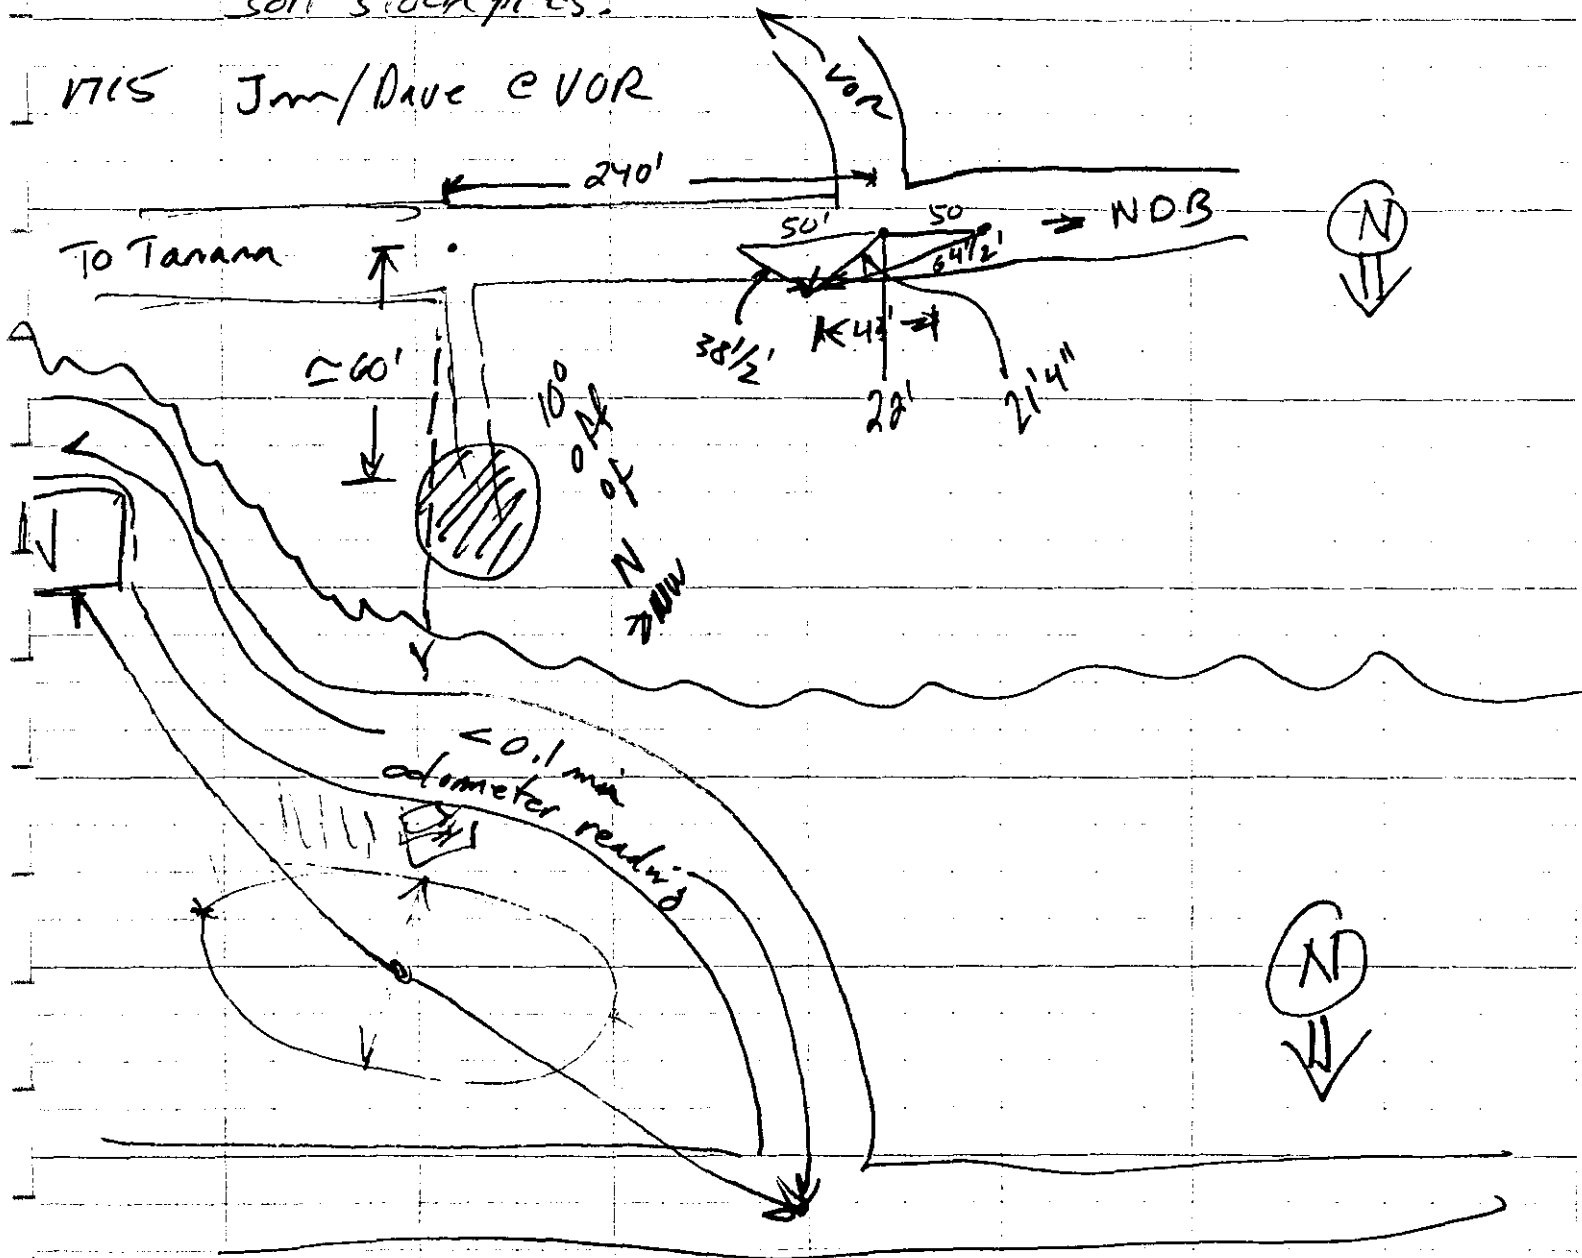 soil stockpiles.
1715 Jim/Dave @ VOR
VOR
240'
50'
50
→ NDB
N
To Tanana
64 1/2'
43'
38 1/2'
22'
21'4"
≃60'
10°
off
of
N
<0.1 min
odometer reading
N